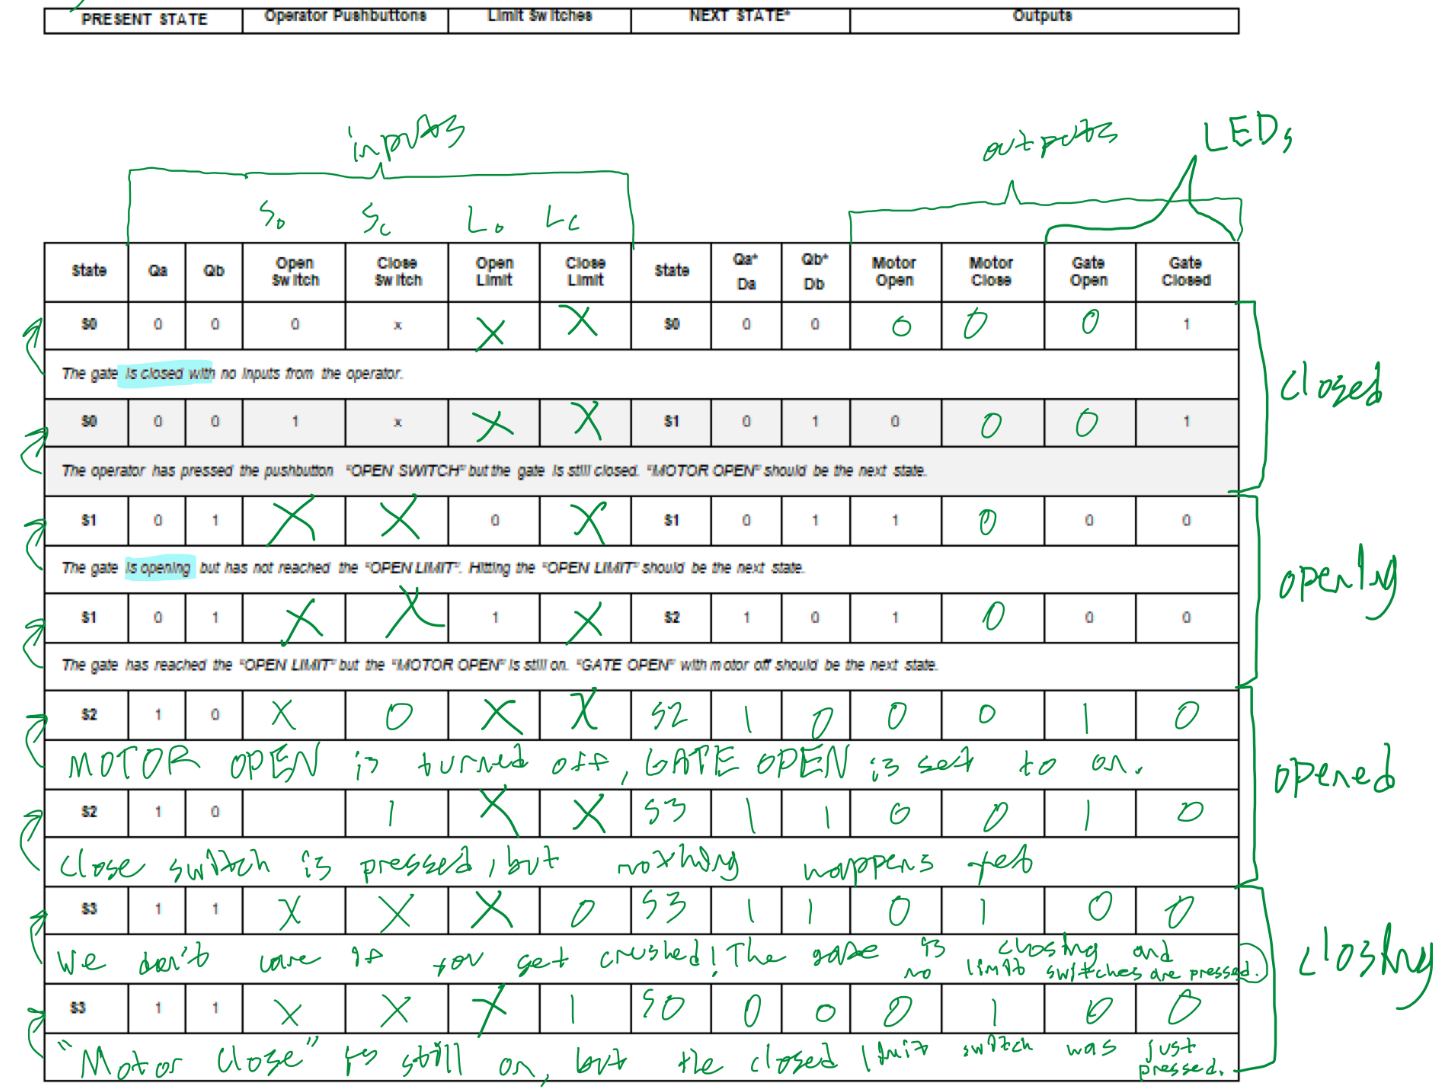 PRESENT STATE Operator Pushbuttons Limit Switches NEXT STATE* Outputs
inputs outputs LEDs
So Sc Lo Lc
State Qa Qb Open Switch Close Switch Open Limit Close Limit State Qa* Da Qb* Db Motor Open Motor Close Gate Open Gate Closed
S0 0 0 0 x X X S0 0 0 0 0 0 1
The gate is closed with no inputs from the operator.
closed
S0 0 0 1 x X X S1 0 1 0 0 0 1
The operator has pressed the pushbutton "OPEN SWITCH" but the gate is still closed. "MOTOR OPEN" should be the next state.
S1 0 1 X X 0 X S1 0 1 1 0 0 0
The gate is opening but has not reached the "OPEN LIMIT". Hitting the "OPEN LIMIT" should be the next state.
opening
S1 0 1 X X 1 X S2 1 0 1 0 0 0
The gate has reached the "OPEN LIMIT" but the "MOTOR OPEN" is still on. "GATE OPEN" with motor off should be the next state.
S2 1 0 X 0 X X S2 1 0 0 0 1 0
MOTOR OPEN is turned off, GATE OPEN is set to on.
opened
S2 1 0 1 X X S3 1 1 0 0 1 0
close switch is pressed, but nothing happens yet
S3 1 1 X X X 0 S3 1 1 0 1 0 0
We don't care if you get crushed! The gate is closing and no limit switches are pressed.
closing
S3 1 1 X X X 1 S0 0 0 0 1 0 0
"Motor Close" is still on, but the closed limit switch was just pressed.